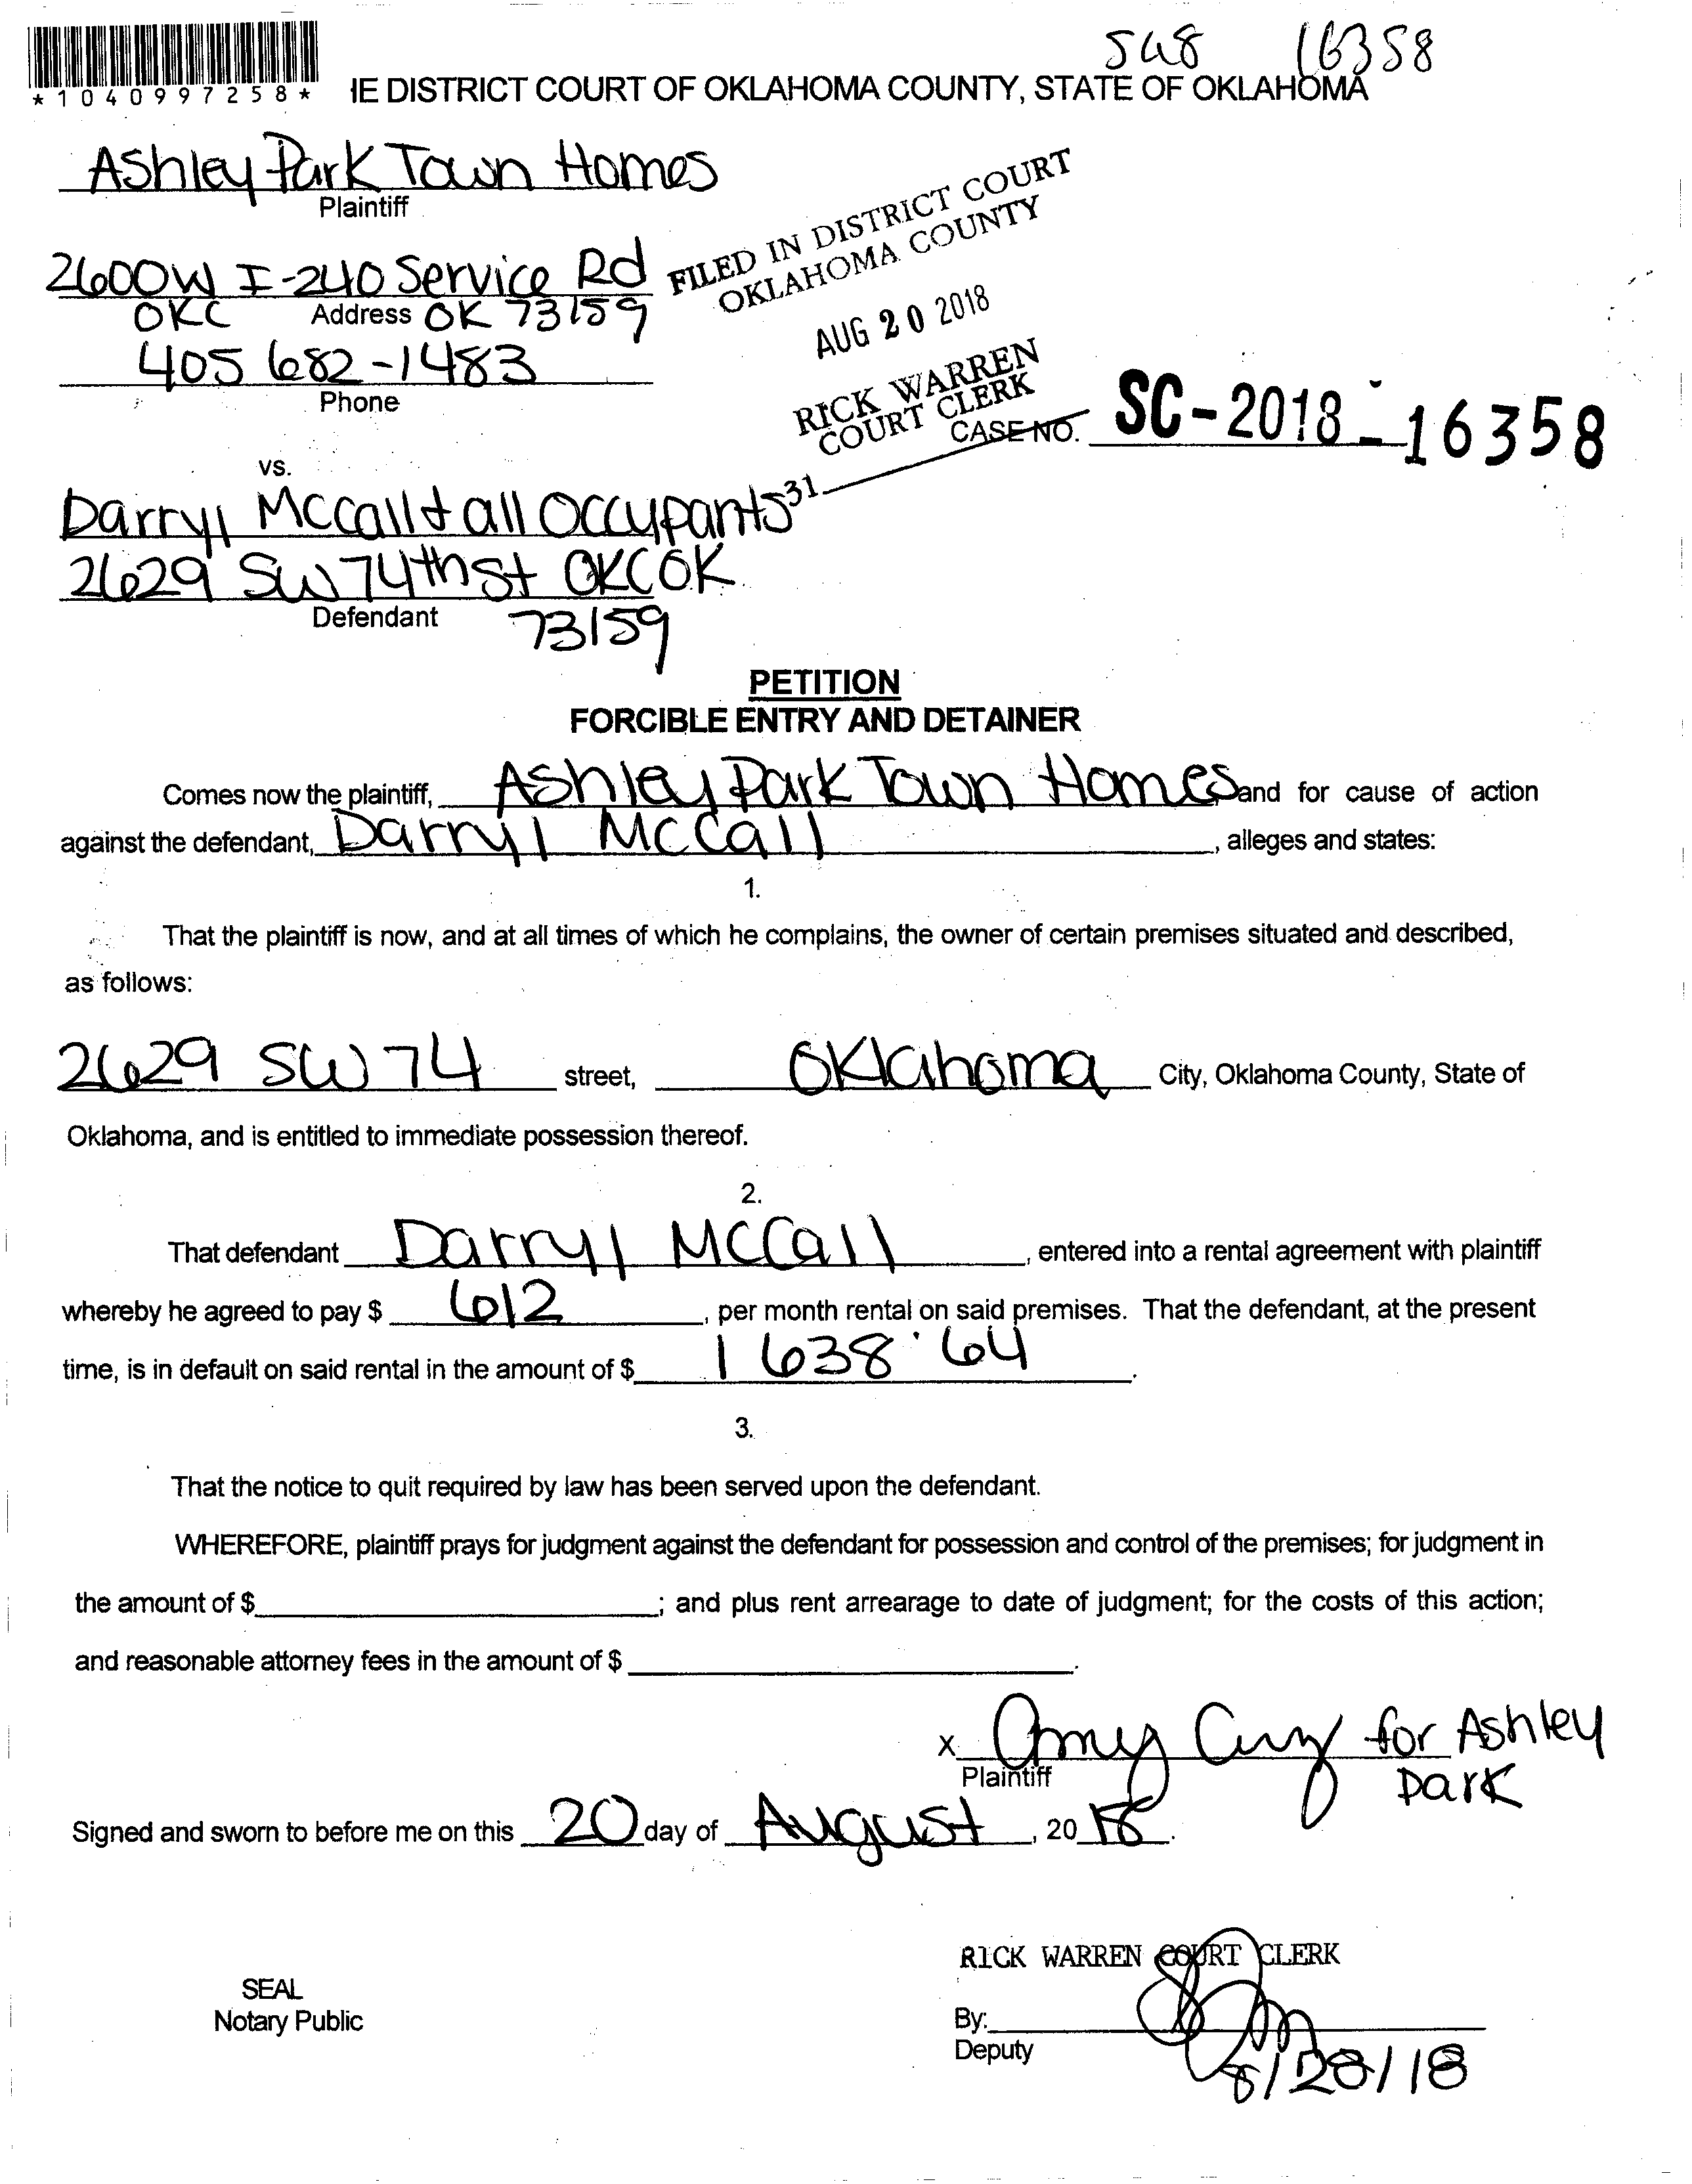 16358
*1040997258*
IE DISTRICT COURT OF OKLAHOMA COUNTY, STATE OF OKLAHOMA
Ashley Park Town Homes
Plaintiff
2600 W I-240 Service Rd
OKC Address OK 73159
405 682-1483
Phone
FILED IN DISTRICT COURT
OKLAHOMA COUNTY
AUG 20 2018
RICK WARREN
COURT CLERK
31
CASE NO. SC-2018-16358
vs.
Darryl Mccall + all Occupants
2629 SW 74th St OKC OK
Defendant 73159
PETITION
FORCIBLE ENTRY AND DETAINER
Comes now the plaintiff, Ashley Park Town Homes, and for cause of action
against the defendant, Darryl McCall, alleges and states:
1.
That the plaintiff is now, and at all times of which he complains, the owner of certain premises situated and described,
as follows:
2629 SW 74 street, Oklahoma City, Oklahoma County, State of
Oklahoma, and is entitled to immediate possession thereof.
2.
That defendant Darryl McCall, entered into a rental agreement with plaintiff
whereby he agreed to pay $ 612, per month rental on said premises. That the defendant, at the present
time, is in default on said rental in the amount of $ 1638.64.
3.
That the notice to quit required by law has been served upon the defendant.
WHEREFORE, plaintiff prays for judgment against the defendant for possession and control of the premises; for judgment in
the amount of $ ; and plus rent arrearage to date of judgment; for the costs of this action;
and reasonable attorney fees in the amount of $ .
x Amy for Ashley
Plaintiff Park
Signed and sworn to before me on this 20 day of August, 2018.
RICK WARREN COURT CLERK
SEAL
Notary Public
By:
Deputy
8/20/18